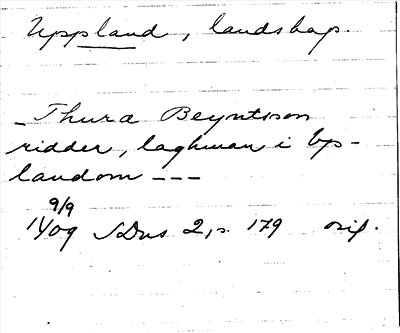 Uppland, landskap.
_Thurd Beyntsson
ridder, laghman i Vp-
landom ---
9/9
1409 SDns 2, s. 179 orig.